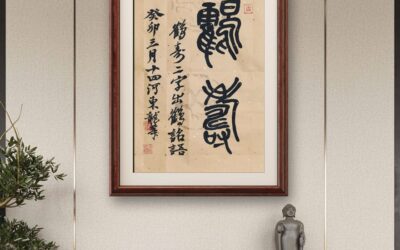 鶴壽
鶴壽二字出鶴語
癸卯三月十四河東